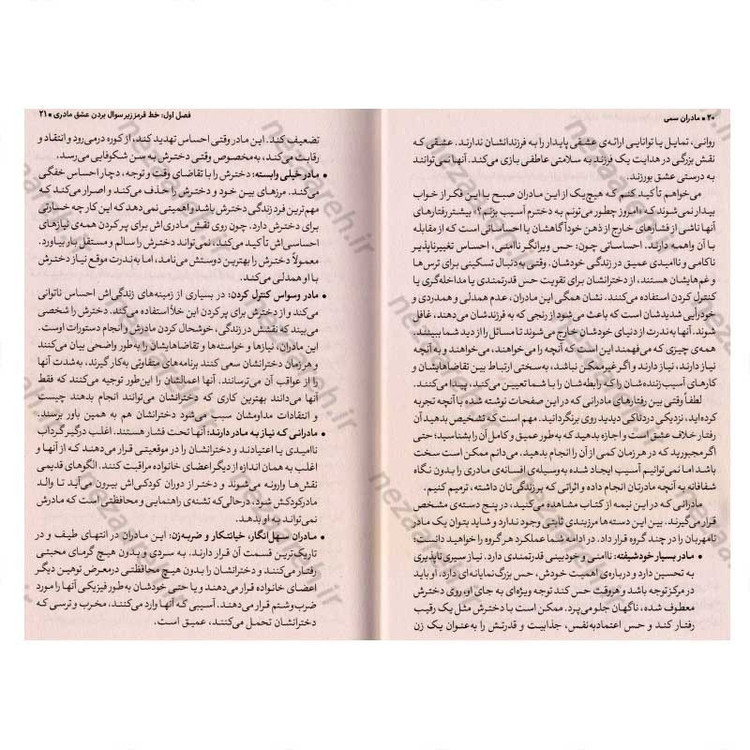 ۲۰ • مادران سمی
روانی، تمایل یا توانایی ارائه‌ی عشقی پایدار را به فرزندانشان ندارند. عشقی که
نقش بزرگی در هدایت یک فرزند به سلامتی عاطفی بازی می‌کند. آنها نمی‌توانند
به درستی عشق بورزند.
می‌خواهم تأکید کنم که هیچ‌یک از این مادران صبح با این فکر از خواب
بیدار نمی‌شوند که «امروز چطور می‌تونم به دخترم آسیب بزنم؟» بیشتر رفتارهای
آنها ناشی از فشارهای خارج از ذهن خودآگاهشان یا احساساتی است که از مقابله
با آن واهمه دارند. احساساتی چون: حس ویرانگر ناامنی، احساس تغییرناپذیر
ناکامی و ناامیدی عمیق در زندگی خودشان. وقتی به‌دنبال تسکینی برای ترس‌ها
و غم‌هایشان هستند، از دخترانشان برای تقویت حس قدرتمندی یا مداخله‌گری یا
کنترل کردن استفاده می‌کنند. نشان همگی این مادران، عدم همدلی و همدردی و
خودرأیی شدیدشان است که باعث می‌شود از رنجی که به فرزندشان می‌دهند، غافل
شوند. آنها به‌ندرت از دنیای خودشان خارج می‌شوند تا مسائل را از دید شما ببینند.
همه‌ی چیزی که می‌فهمند این است که آنچه را می‌خواهند، می‌خواهند و به آنچه
نیاز دارند، نیاز دارند و اگر غیرممکن نباشد، به‌سختی ارتباط بین تقاضاهایشان و
کارهای آسیب‌زننده‌شان را که رابطه‌شان را با شما تعیین می‌کنید، پیدا می‌کنند.
لطفاً وقتی بین رفتارهای مادرانی که در این صفحات نوشته شده با آنچه تجربه
کرده‌اید، نزدیکی دردناکی دیدید روی برنگردانید. مهم است که تشخیص بدهید آن
رفتار خلاف عشق است و اجازه بدهید که به‌طور عمیق و کامل آن را بشناسید؛ حتی
اگر مجبورید که در هر زمان کمی از آن را انجام بدهید. می‌دانم ممکن است سخت
باشد اما نمی‌توانیم آسیب ایجاد شده به‌وسیله‌ی افسانه‌ی مادری را بدون نگاه
شفافانه به آنچه مادرتان انجام داده و اثراتی که بر زندگی‌تان داشته، ترمیم کنیم.
مادرانی که در این نیمه از کتاب مشاهده می‌کنید، در پنج دسته‌ی مشخص
قرار می‌گیرند. بین این دسته‌ها مرزبندی ثابتی وجود ندارد و شاید بتوان یک مادر
را همزمان در چند گروه قرار داد. در ادامه شما عملکرد هر گروه را خواهید دانست:
• مادر بسیار خودشیفته: ناامنی و خودبینی قدرتمندی دارد. نیاز سیری ناپذیری
به تحسین دارد و درباره‌ی اهمیت خودش، حس بزرگ‌نمایانه‌ای دارد، او باید
در مرکز توجه باشد و هروقت حس کند توجه ویژه‌ای به جای او، روی دخترش
معطوف شده، ناگهان جلو می‌پرد. ممکن است با دخترش مثل یک رقیب
رفتار کند و حس اعتمادبه‌نفس، جذابیت و قدرتش را به‌عنوان یک زن
فصل اول: خط قرمز زیر سوال بردن عشق مادری • ۲۱
تضعیف کند. این مادر وقتی احساس تهدید کند، از کوره درمی‌رود و انتقاد و
رقابت می‌کند، به‌مخصوص وقتی دخترش به سن شکوفایی می‌رسد.
• مادر خیلی وابسته: دخترش را با تقاضای وقت و توجه، دچار احساس خفگی
می‌کند. مرزهای بین خود و دخترش را حذف می‌کند و اصرار می‌کند که
مهم‌ترین فرد زندگی دخترش باشد و اهمیتی نمی‌دهد که این کار چه خسارتی
برای دخترش دارد. چون روی نقش مادری‌اش برای پر کردن همه‌ی نیازهای
احساسی‌اش تأکید می‌کند، نمی‌تواند دخترش را سالم و مستقل بار بیاورد.
معمولاً دخترش را بهترین دوستش می‌نامد، اما به‌ندرت موقع نیاز دخترش
با او همدلی می‌کند.
• مادر وسواس کنترل کردن: در بسیاری از زمینه‌های زندگی‌اش احساس ناتوانی
می‌کند و از دخترش برای پر کردن این خلأ استفاده می‌کند. دخترش را شخصی
می‌بیند که نقشش در زندگی، خوشحال کردن مادرش و انجام دستورات اوست.
این مادران، نیازها و خواسته‌ها و تقاضاهایشان را به‌طور واضحی بیان می‌کنند
و هر زمان دخترانشان سعی کنند برنامه‌های متفاوتی به‌کار گیرند، به‌شدت آنها
را از عواقب آن می‌ترسانند. آنها اعمالشان را این‌طور توجیه می‌کنند که فقط
آنها می‌دانند بهترین کاری که دخترانشان می‌توانند انجام بدهند چیست
و انتقادات مداومشان سبب می‌شود دخترانشان هم به همین باور برسند.
• مادرانی که نیاز به مادر دارند: آنها تحت فشار هستند. اغلب درگیر گرداب
ناامیدی یا اعتیادند و دخترانشان را در موقعیتی قرار می‌دهند که از آنها و
اغلب به همان اندازه از دیگر اعضای خانواده مراقبت کنند. الگوهای قدیمی
نقش‌ها وارونه می‌شوند و دختر از دوران کودکی‌اش بیرون می‌آید تا والد
مادر کودکش شود، درحالی‌که تشنه‌ی راهنمایی و محافظتی است که مادرش
نمی‌تواند به او بدهد.
• مادران سهل‌انگار، خیانتکار و ضربه‌زن: این مادران در انتهای طیف و در
تاریک‌ترین قسمت آن قرار دارند. به سردی و بدون هیچ گرمای محبتی
رفتار می‌کنند و دخترانشان را بدون هیچ محافظتی درمعرض توهین دیگر
اعضای خانواده قرار می‌دهند و یا حتی خودشان به‌طور فیزیکی آنها را مورد
ضرب‌وشتم قرار می‌دهند. آسیبی که آنها وارد می‌کنند، مخرب و ترسی که
دخترانشان تحمل می‌کنند، عمیق است.
nezaareh.ir